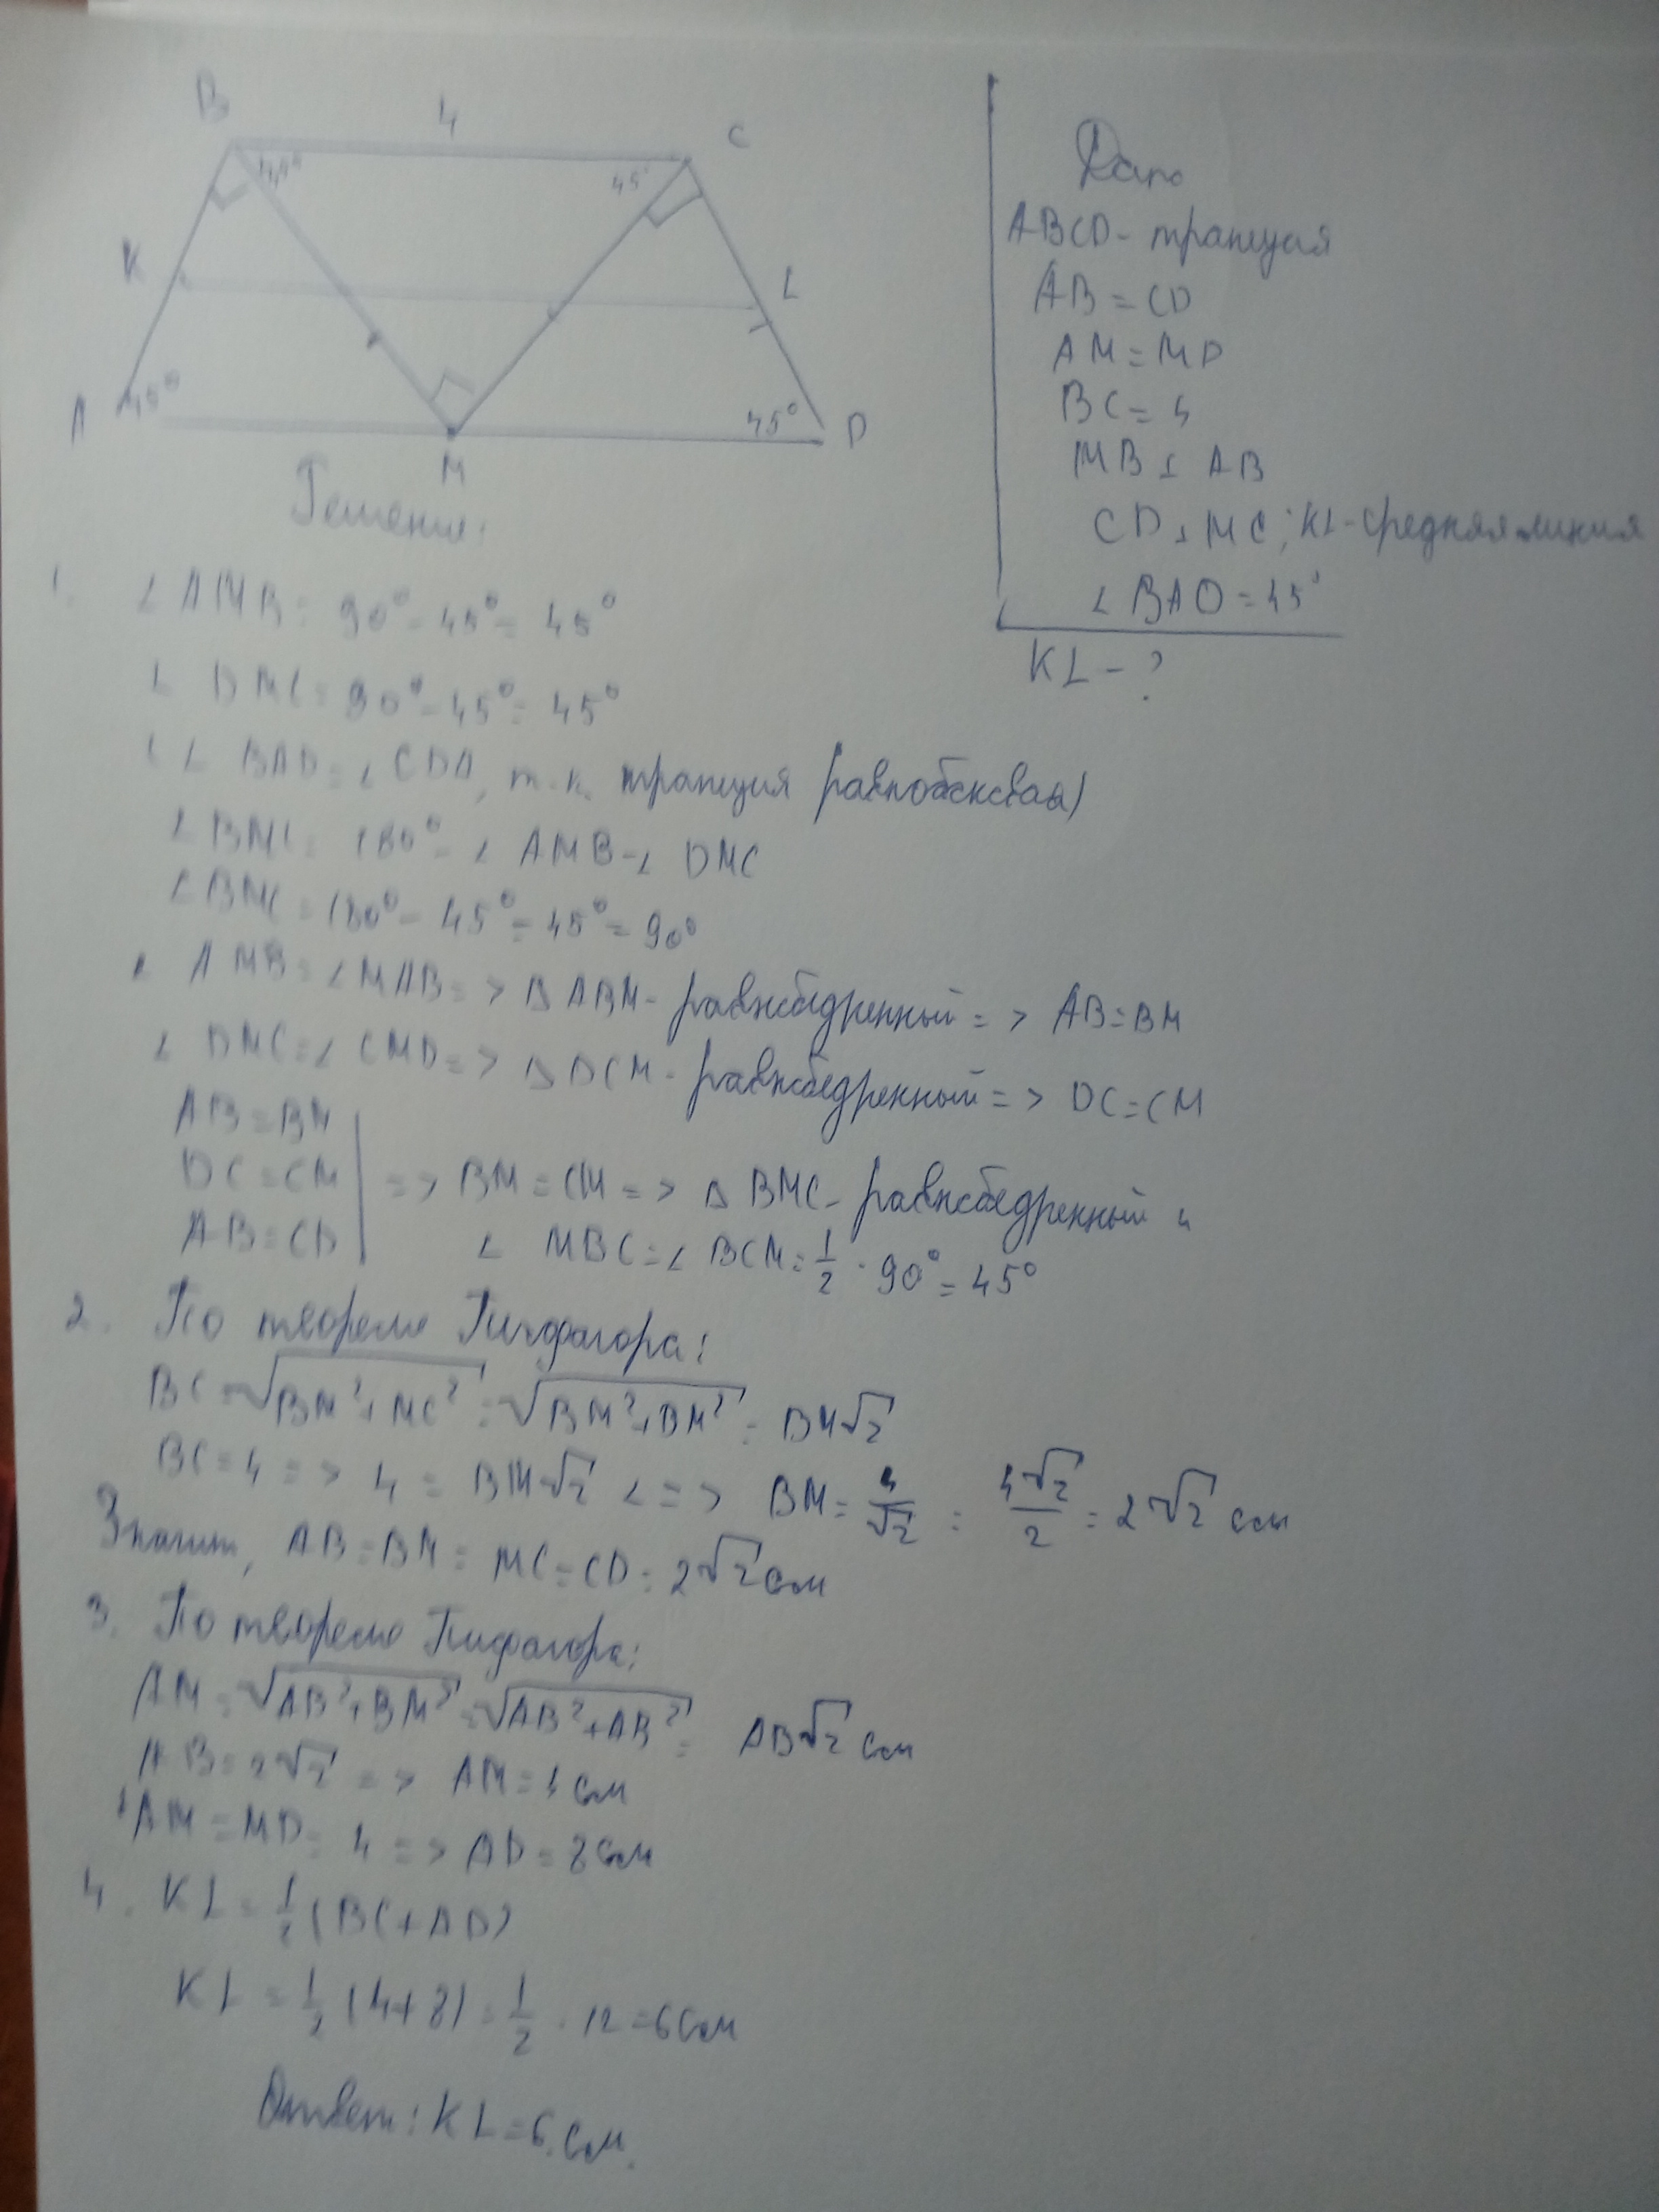 B 4 C
45° 45°
K L
A 45° 45° D
M
Дано
ABCD - трапеция
AB = CD
AM = MD
BC = 4
MB ⊥ AB
CD ⊥ MC; KL - средняя линия
∠BAD = 45°
KL - ?
Решение:
1. ∠AMB = 90° - 45° = 45°
∠DMC = 90° - 45° = 45°
(∠BAD = ∠CDA, т.к. трапеция равнобокая)
∠BMC = 180° - ∠AMB - ∠DMC
∠BMC = 180° - 45° - 45° = 90°
∠AMB = ∠MAB => ΔABM - равнобедренный => AB = BM
∠DMC = ∠CMD => ΔDCM - равнобедренный => DC = CM
AB = BM
DC = CM => BM = CM => ΔBMC - равнобедренный и
AB = CD ∠MBC = ∠BCM = 1/2 · 90° = 45°
2. По теореме Пифагора:
BC = √(BM² + MC²) = √(BM² + BM²) = BM√2
BC = 4 => 4 = BM√2 <=> BM = 4/√2 = 4√2/2 = 2√2 см
Значит, AB = BM = MC = CD = 2√2 см
3. По теореме Пифагора:
AM = √(AB² + BM²) = √(AB² + AB²) = AB√2 см
AB = 2√2 => AM = 4 см
AM = MD = 4 => AD = 8 см
4. KL = 1/2 (BC + AD)
KL = 1/2 (4 + 8) = 1/2 · 12 = 6 см
Ответ: KL = 6 см.